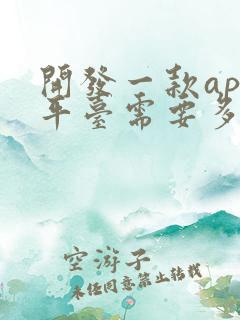 開發一款ap
平臺需要多
空游子
未經同意禁止轉載